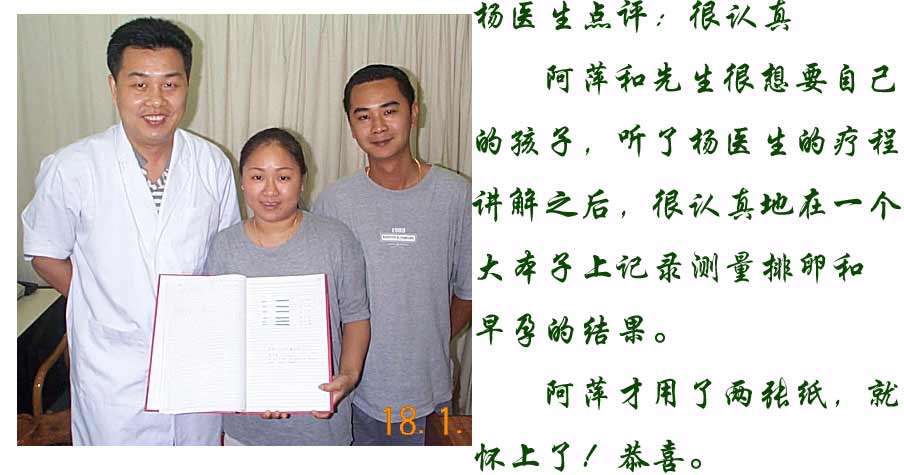 杨医生点评：很认真
阿萍和先生很想要自己
的孩子，听了杨医生的疗程
讲解之后，很认真地在一个
大本子上记录测量排卵和
早孕的结果。
阿萍才用了两张纸，就
怀上了！恭喜。
1989
18. 1.